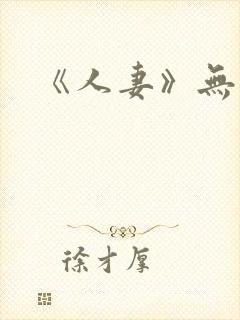 《人妻》無
徐才厚